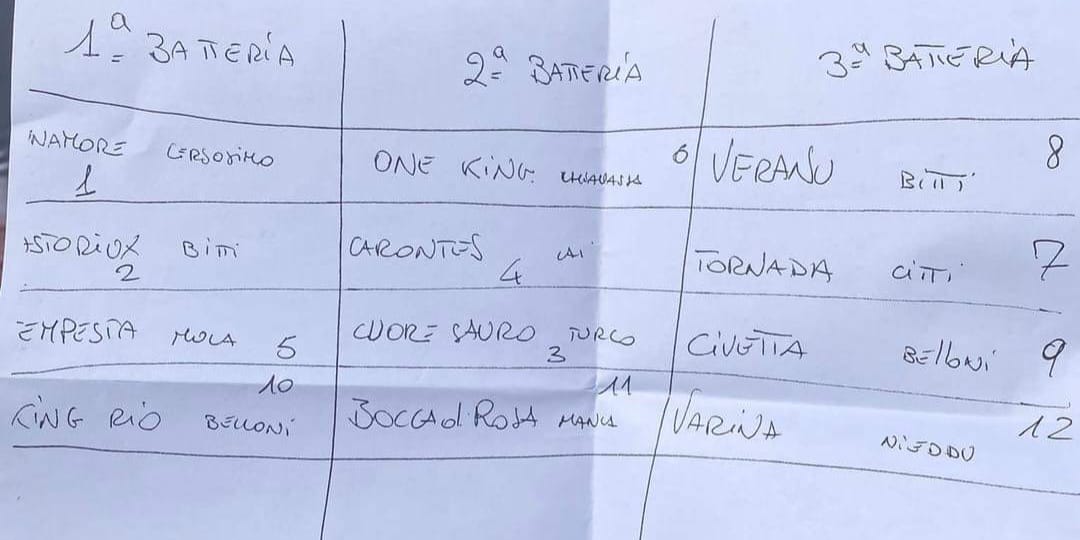 1ª BATTERIA
2ª BATTERIA
3ª BATTERIA
INAMORE CERSOSIMO
1
ONE KING
6
VERANU BITTI 8
ISTORIUX BITTI
2
CARONTES LAI
4
TORNADA CITTI 7
EMPESTA MULA 5
CUORE SAURO TURCO
3
CIVETTA BELLONI 9
10
KING RIO BELLONI
11
BOCCA di ROSA MANCA
VARINA NIEDDU 12